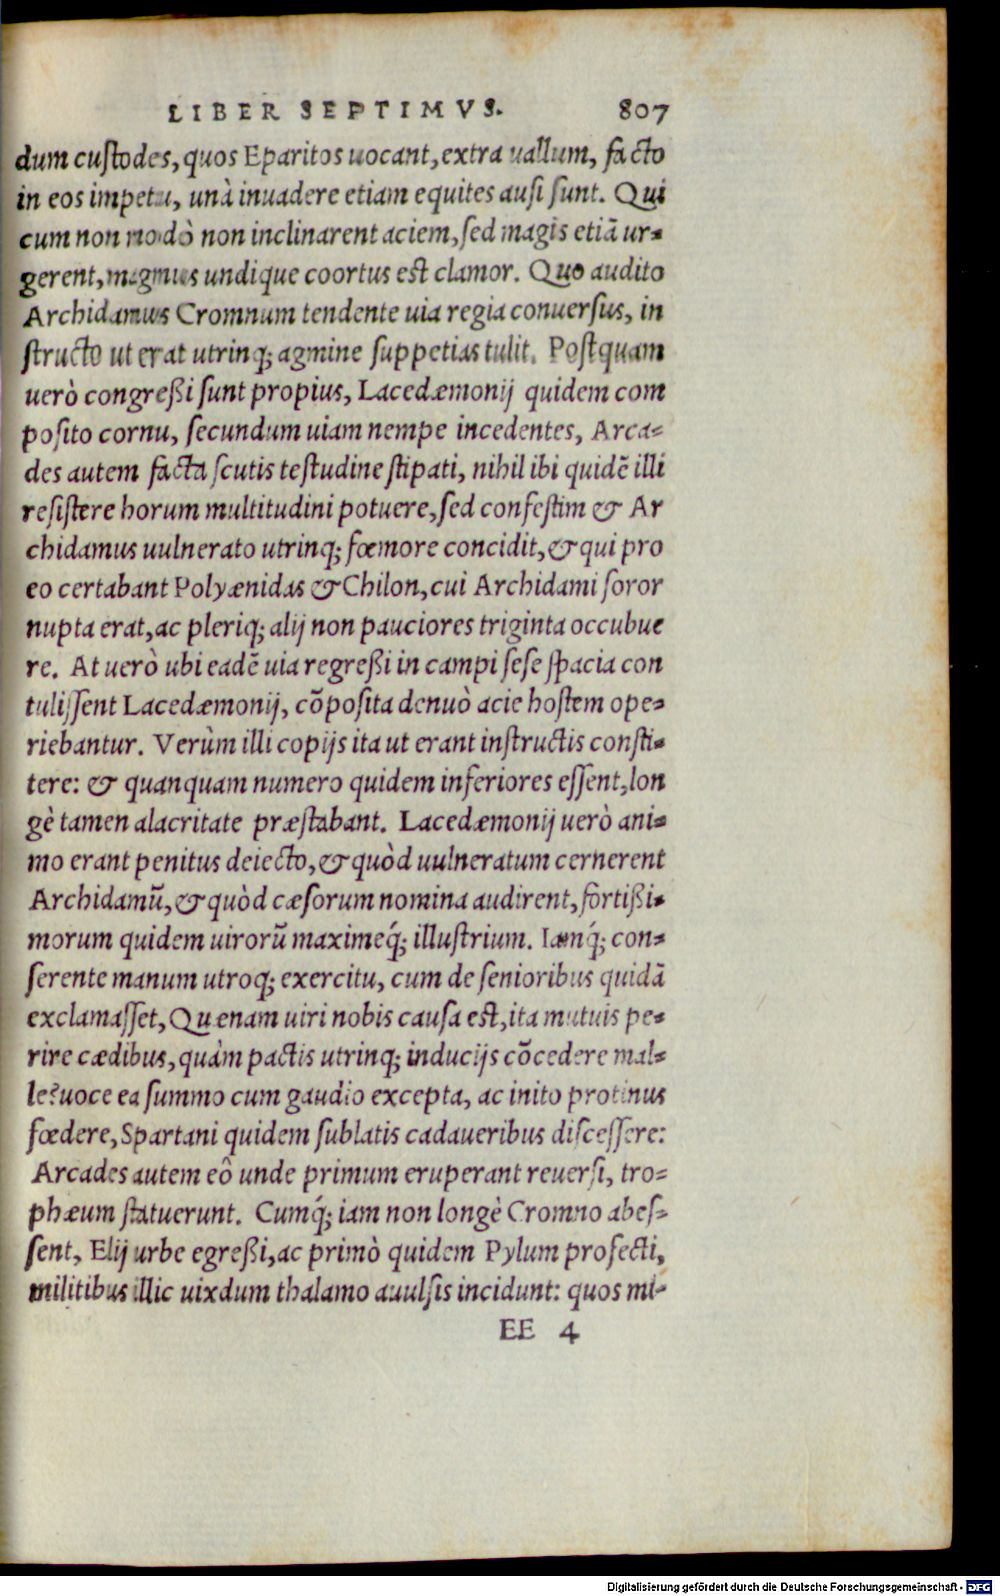 LIBER SEPTIMVS. 807
dum cuſtodes, quos Eparitos uocant, extra uallum, facto
in eos impetu, unà inuadere etiam equites auſi ſunt. Qui
cum non modò non inclinarent aciem, ſed magis etiã ur-
gerent, magnus undique coortus eſt clamor. Quo audito
Archidamus Cromnum tendente uia regia conuerſus, in
ſtructo ut erat utrinq; agmine ſuppetias tulit. Poſtquam
uerò congreßi ſunt propius, Lacedæmonij quidem com
poſito cornu, ſecundum uiam nempe incedentes, Arca-
des autem facta ſcutis teſtudine ſtipati, nihil ibi quidẽ illi
reſiſtere horum multitudini potuere, ſed confeſtim & Ar
chidamus uulnerato utrinq; fœmore concidit, & qui pro
eo certabant Polyænidas & Chilon, cui Archidami ſoror
nupta erat, ac pleriq; alij non pauciores triginta occubue
re. At uerò ubi eadẽ uia regreßi in campi ſeſe ſpacia con
tuliſſent Lacedæmonij, cõpoſita denuò acie hoſtem ope-
riebantur. Verùm illi copijs ita ut erant inſtructis conſti-
tere: & quanquam numero quidem inferiores eſſent, lon
gè tamen alacritate præſtabant. Lacedæmonij uerò ani-
mo erant penitus deiecto, & quòd uulneratum cernerent
Archidamũ, & quòd cæſorum nomina audirent, fortißi-
morum quidem uirorũ maximeq́; illuſtrium. Iamq́; con-
ſerente manum utroq; exercitu, cum de ſenioribus quidã
exclamaſſet, Quænam uiri nobis cauſa eſt, ita mutuis pe-
rire cædibus, quàm pactis utrinq; inducijs cõcedere mal-
le? uoce ea ſummo cum gaudio excepta, ac inito protinus
fœdere, Spartani quidem ſublatis cadaueribus diſceſſere:
Arcades autem eô unde primum eruperant reuerſi, tro-
phæum ſtatuerunt. Cumq́; iam non longè Cromno abeſ-
ſent, Elij urbe egreßi, ac primò quidem Pylum profecti,
militibus illic uixdum thalamo auulſis incidunt: quos mi-
EE 4
Digitalisierung gefördert durch die Deutsche Forschungsgemeinschaft - DFG